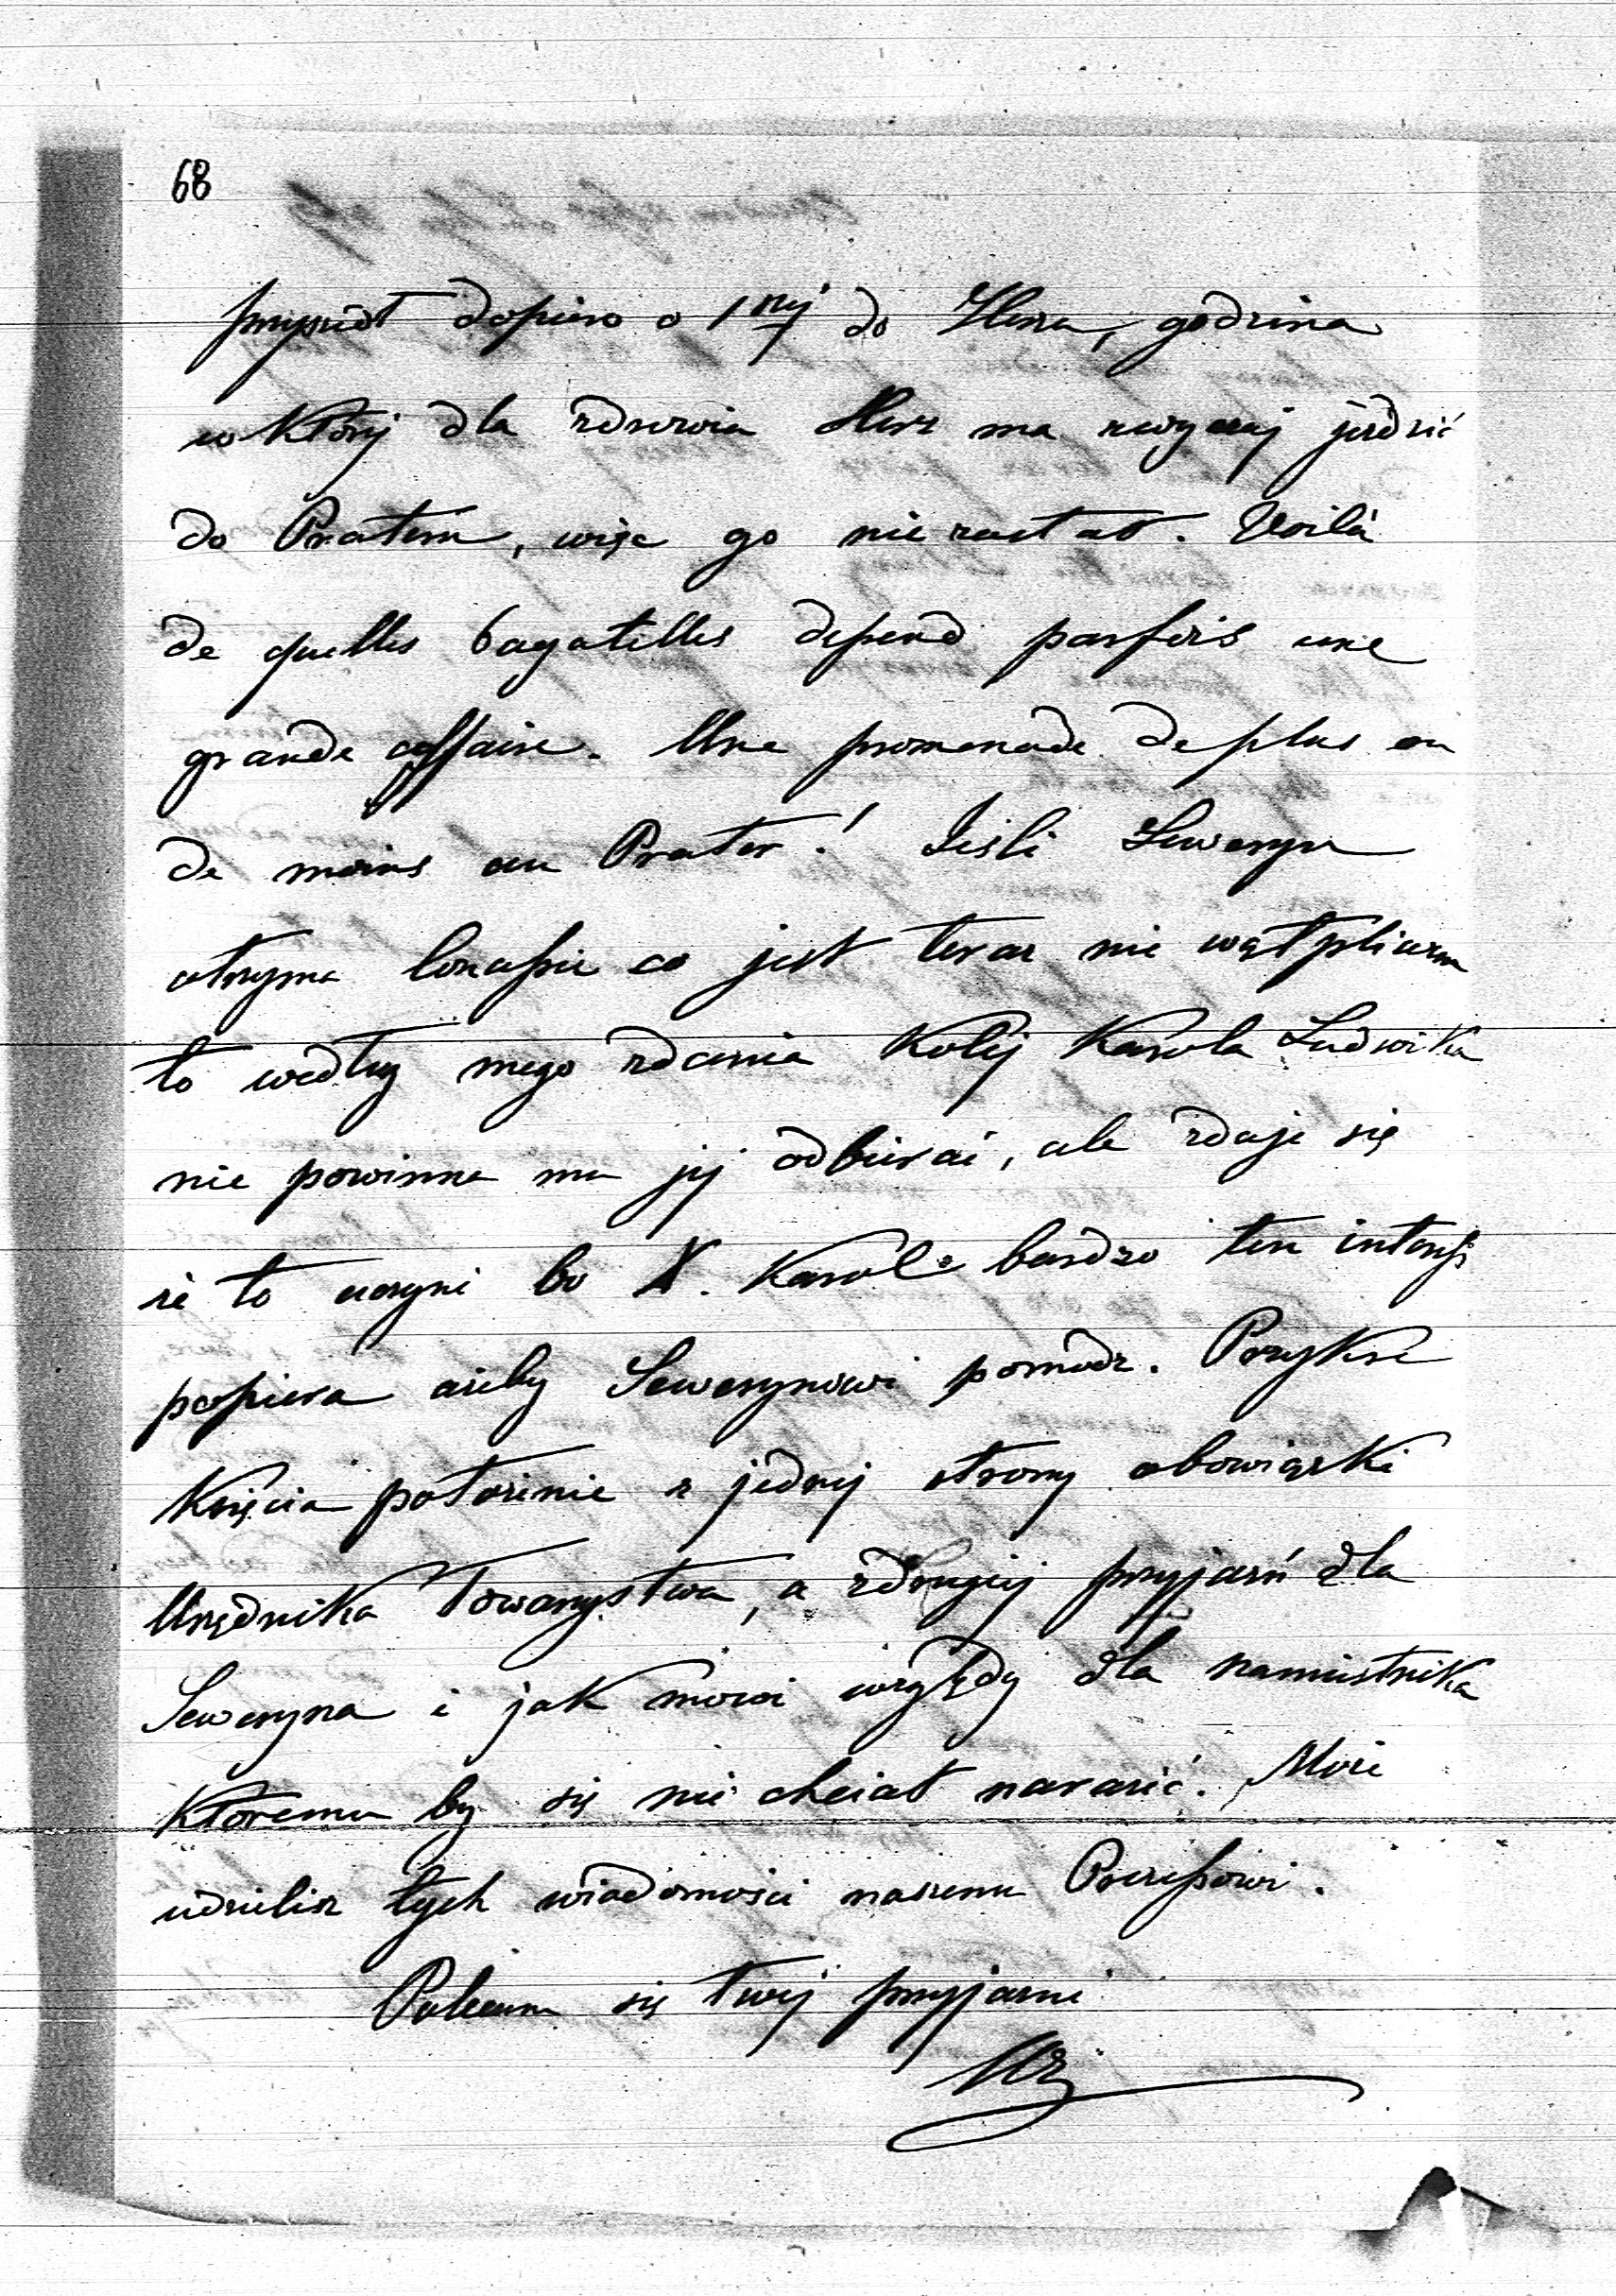 68
przyszedł dopiero o 1 nej do Herza, godzina
w któréj dla zdrowia Herz ma zwyczaj jeździć
do Prateru, więc go nie zastał. Voilà
de quelles bagatelles depend parfois une
grande affaire. Une promenade de plus ou
de moins au Prater! Jeśli Seweryn
otrzyma koncessie co jest teraz nie wątpliwem
to według mego zdania Kolej Karola Ludwika
nie powinna mu jej odbierać, ale zdaje się
że to uczyni bo X. Karol bardzo ten interes
popiera ażeby Sewerynowi pomódz. Przykre
Księcia położenie z jednej strony obowiązki
Urzędnika Towarzystwa, a zdrugiej przyjaźń dla
Seweryna i jak mówi względy dla namiestnika
któremu by się nie chciał narazić. Może
udzielisz tych wiadomości naszemu Prezesowi.
Polecam się twej przyjaźni